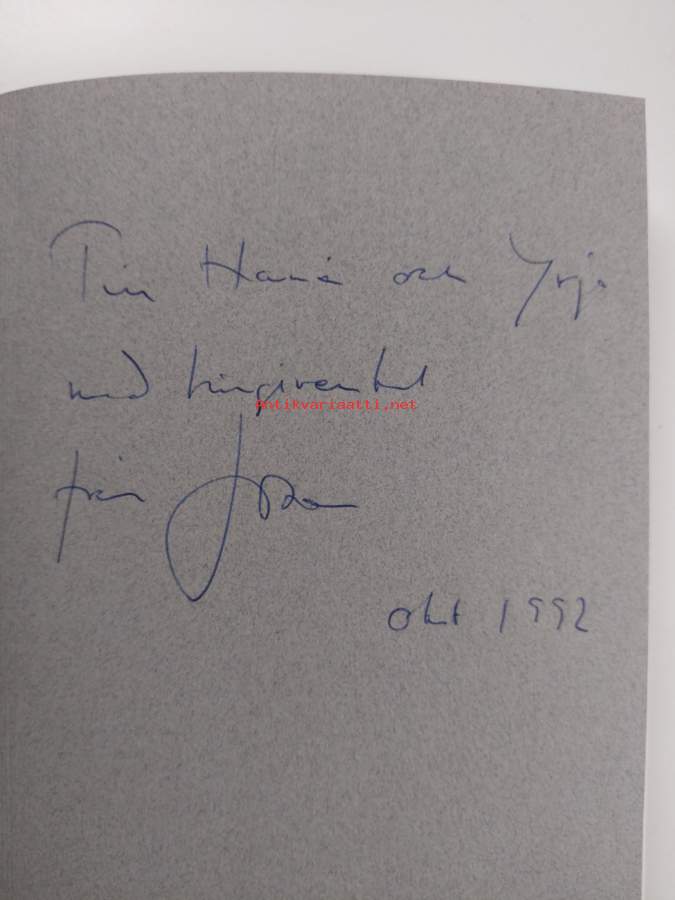 Till och Yrjö
med tillgivenhet
Antikvariaatti.net
från Johan
okt 1992